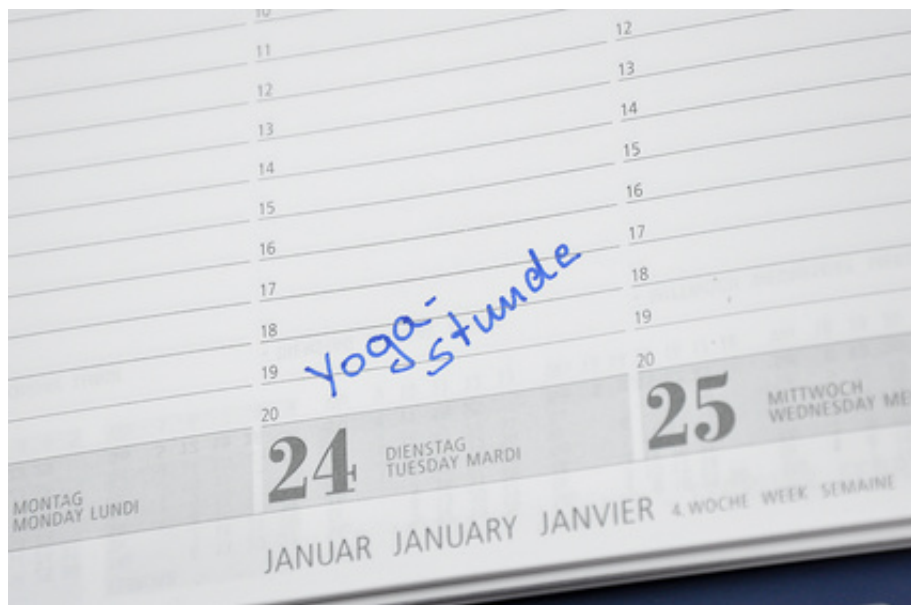 10
11
12
13
14
15
16
17
18
19
20
12
13
14
15
16
17
18
19
20
Yoga-
stunde
MONTAG
MONDAY LUNDI
24 DIENSTAG
TUESDAY MARDI
25 MITTWOCH
WEDNESDAY ME
JANUAR JANUARY JANVIER 4. WOCHE WEEK SEMAINE